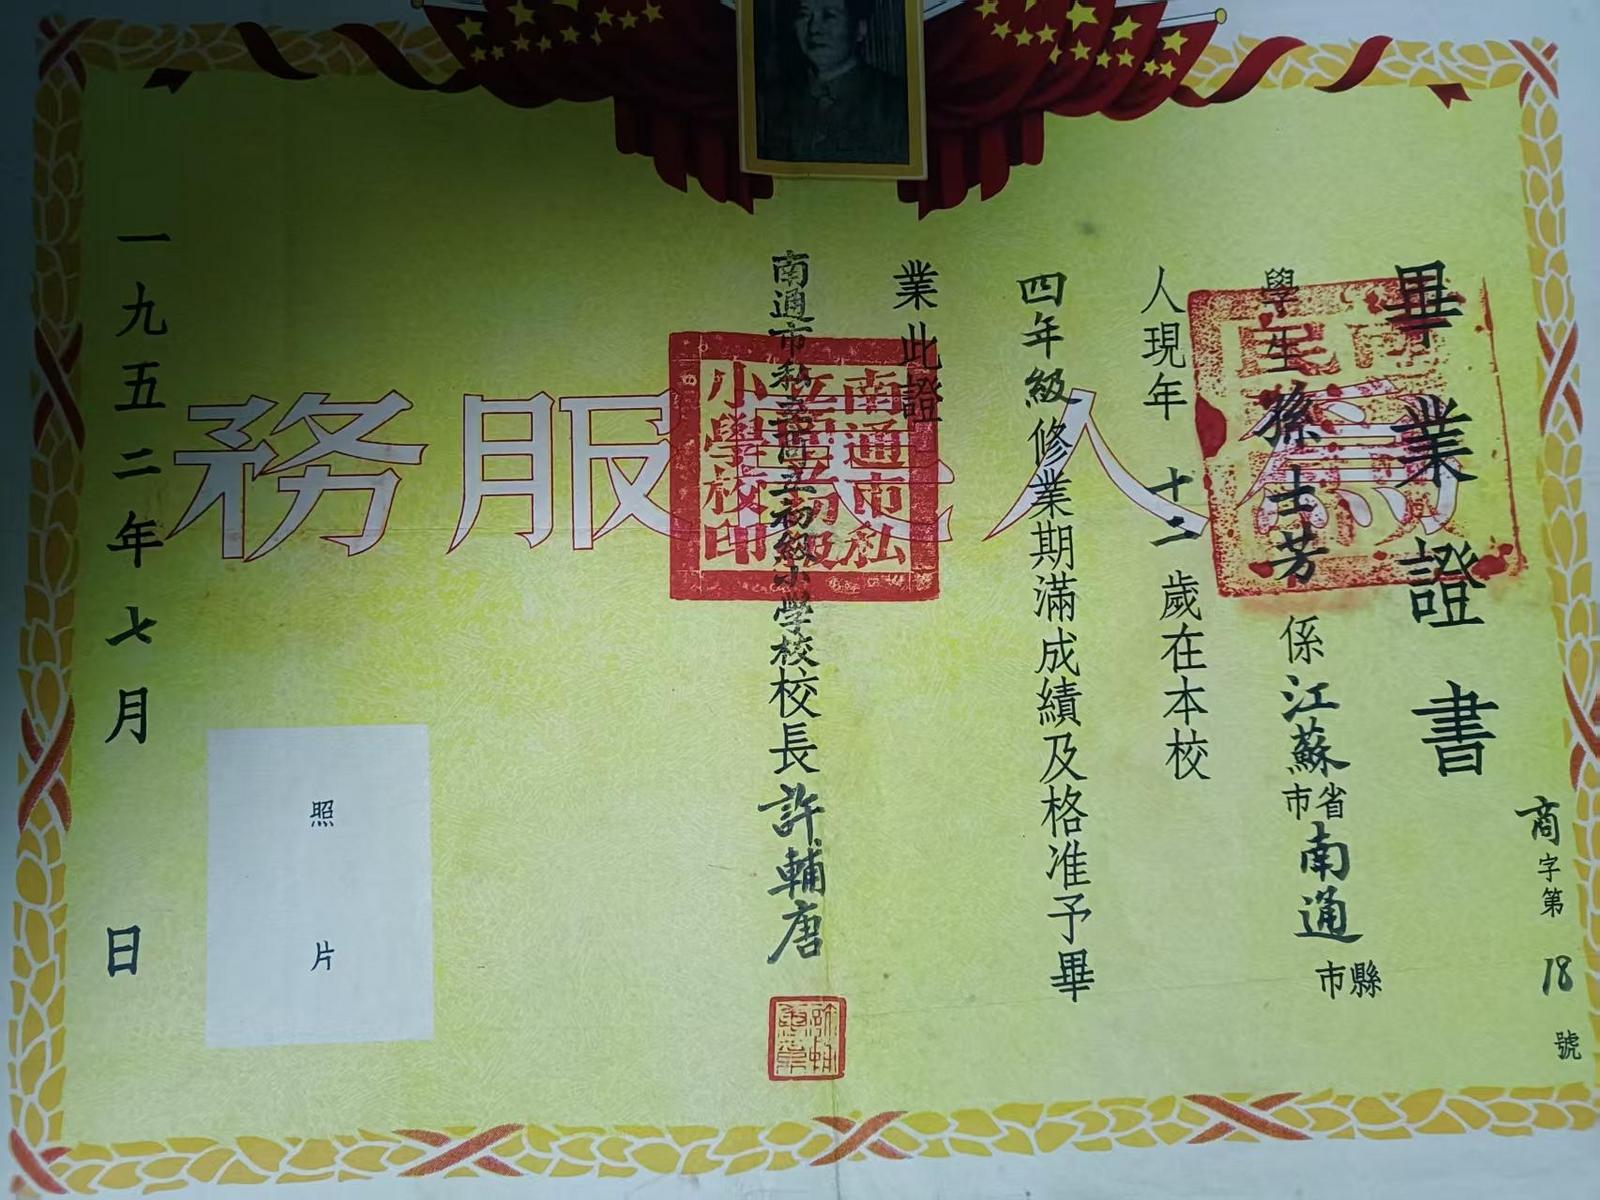 畢業證書
商字第18號
學生孫士芳係江蘇省市南通縣市
人現年十二歲在本校
四年級修業期滿成績及格准予畢
業此證
南通市私立商益初級小學校校長許輔唐
一九五二年七月 日
照片
為人民服務
南通市私
小學校印